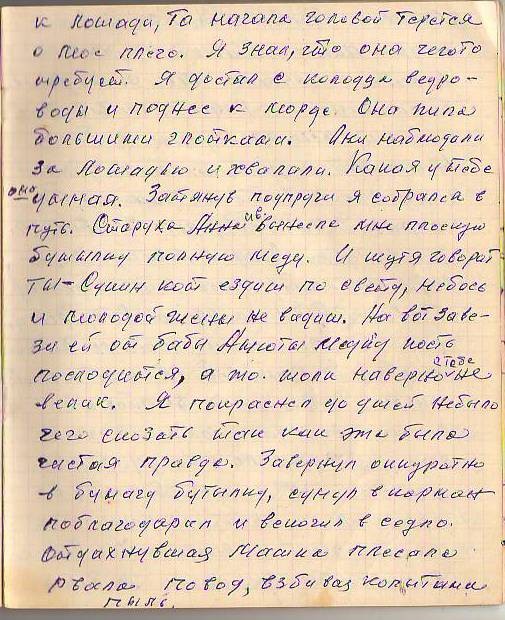 к лошади, та начала головой терется
о мое плечо. Я знал, что она чегото
требует. Я достал с колодца ведро-
воды и поднес к морде. Она пила
большими глотками. Они наблюдали
за лошадью и хвалили. Какая у тебе
она умная. Затянув подпруги я собрался в
путь. Старуха Анна вынесла мне плоскую
бутылку полную меду. И шутя говорит
ты- сукин кот ездиш по свету, небось
и молодой жены не видиш. На вот заве-
зи ей от бабы Анюты меду пусть
посладится, а то. толи наверно с тебе не
велик. Я покраснел до ушей небыло
чего сказать так как это была
чистая правда. Завернул аккуратно
в бумагу бутылку, сунул в карман
поблагодарил и вскочил в седло.
Отдахнувшая Машка плесала
рвала повод, взбивая копытами
пыль.